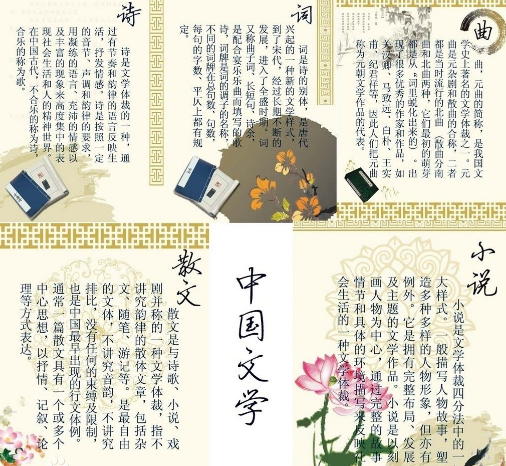 诗
诗是文学体裁的一种，通
过有节奏和韵律的语言反映生
活，抒发情感。诗是按照一定
的音节、声调和韵律的要求，
用凝练的语言、充沛的情感以
及丰富的现象来高度集中的表
现社会生活和人的精神世界。
在中国古代，不合乐的称为诗，
合乐的称为歌。
词
词是诗的别体，是唐代
兴起的一种新的文学样式，
到了宋代，经过长期不断的
发展，进入了全盛时期。词
又称曲子词、长短句、诗余，
是配合宴乐乐曲而填写的歌
诗，词牌是词的调子的名称，
不同的词牌在总句数、句数，
每句的字数、平仄上都有规
曲
曲，元曲的简称，是我国文
学史上著名的文学体裁之一。元
曲是元杂剧和散曲的合称，二者
都是当时流行的北曲（散曲分南
曲和北曲两种，它们最初的萌芽
都是从“词里蜕化出来的）。出
现了很多优秀的作家和作品，如
关汉卿、马致远、白朴、王实
甫、纪君祥等，因此人们把元曲
称为元朝文学作品的代表。
散文
散文是与诗歌、小说、戏
剧并称的一种文学体裁，指不
讲究韵律的散体文章，包括杂
文、随笔、游记等。是最自由
的文体，不讲究音韵，不讲究
排比，没有任何的束缚及限制，
也是中国最早出现的行文体例。
通常一篇散文具有一个或多个
中心思想，以抒情、记叙、论
理等方式表达。
中国文学
小说
小说是文学体裁四分法中的一
大样式。一般描写人物故事，塑
造多种多样的人物形象，但亦有
例外。它是拥有完整布局、发展
及主题的文学作品。小说是以刻
画人物为中心，通过完整的故事
情节和具体的环境描写来反映社
会生活的一种文学体裁